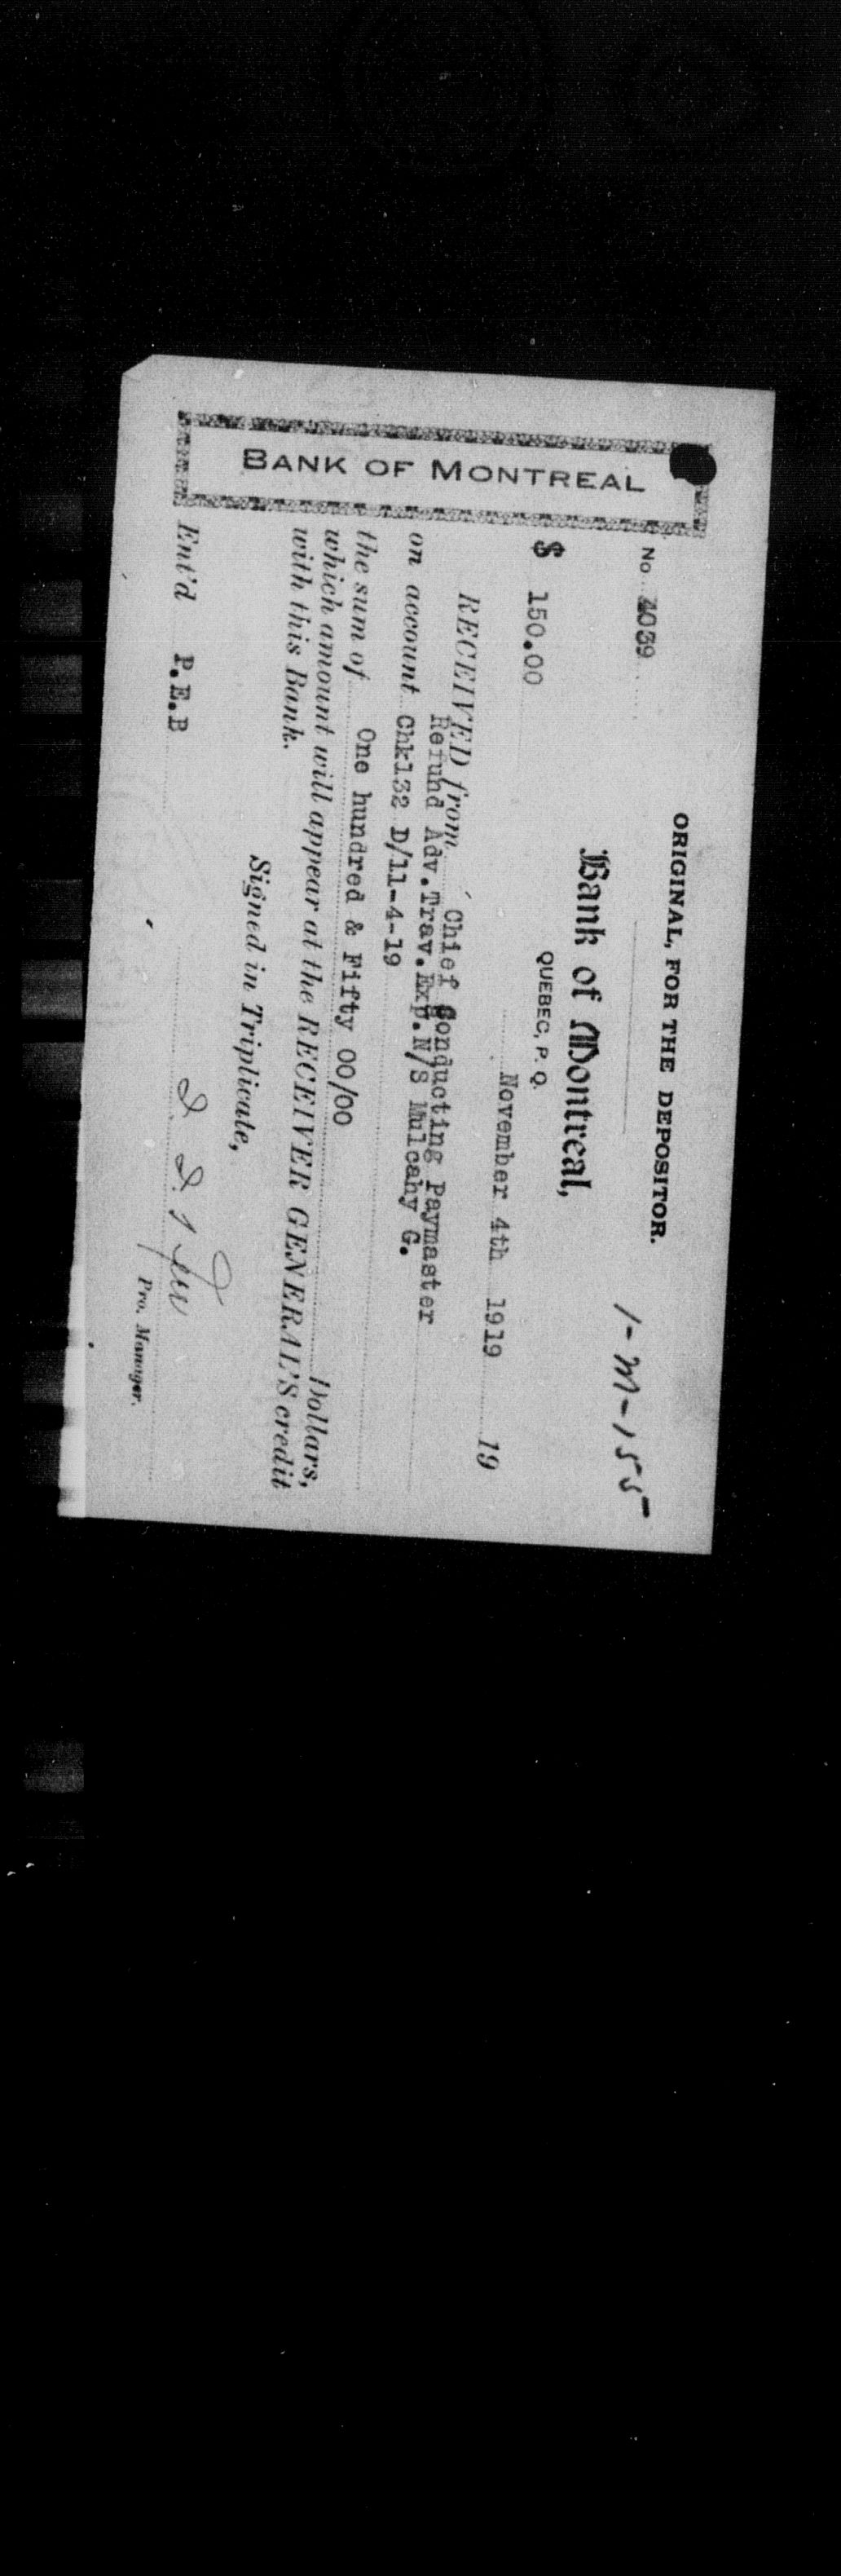 ORIGINAL, FOR THE DEPOSITOR.
1-M-155
No 4039
Bank of Montreal,
QUEBEC, P. Q.
$ 150.00
November 4th 1919 19
RECEIVED from Chief Conducting Paymaster
Refund Adv.Trav.Exp.N/S Mulcahy G.
on account Chk132 D/11-4-19
the sum of One hundred & Fifty 00/00
Dollars,
which amount will appear at the RECEIVER GENERAL'S credit
with this Bank.
Signed in Triplicate,
Ent'd P.E.B
Pro. Manager.
BANK OF MONTREAL